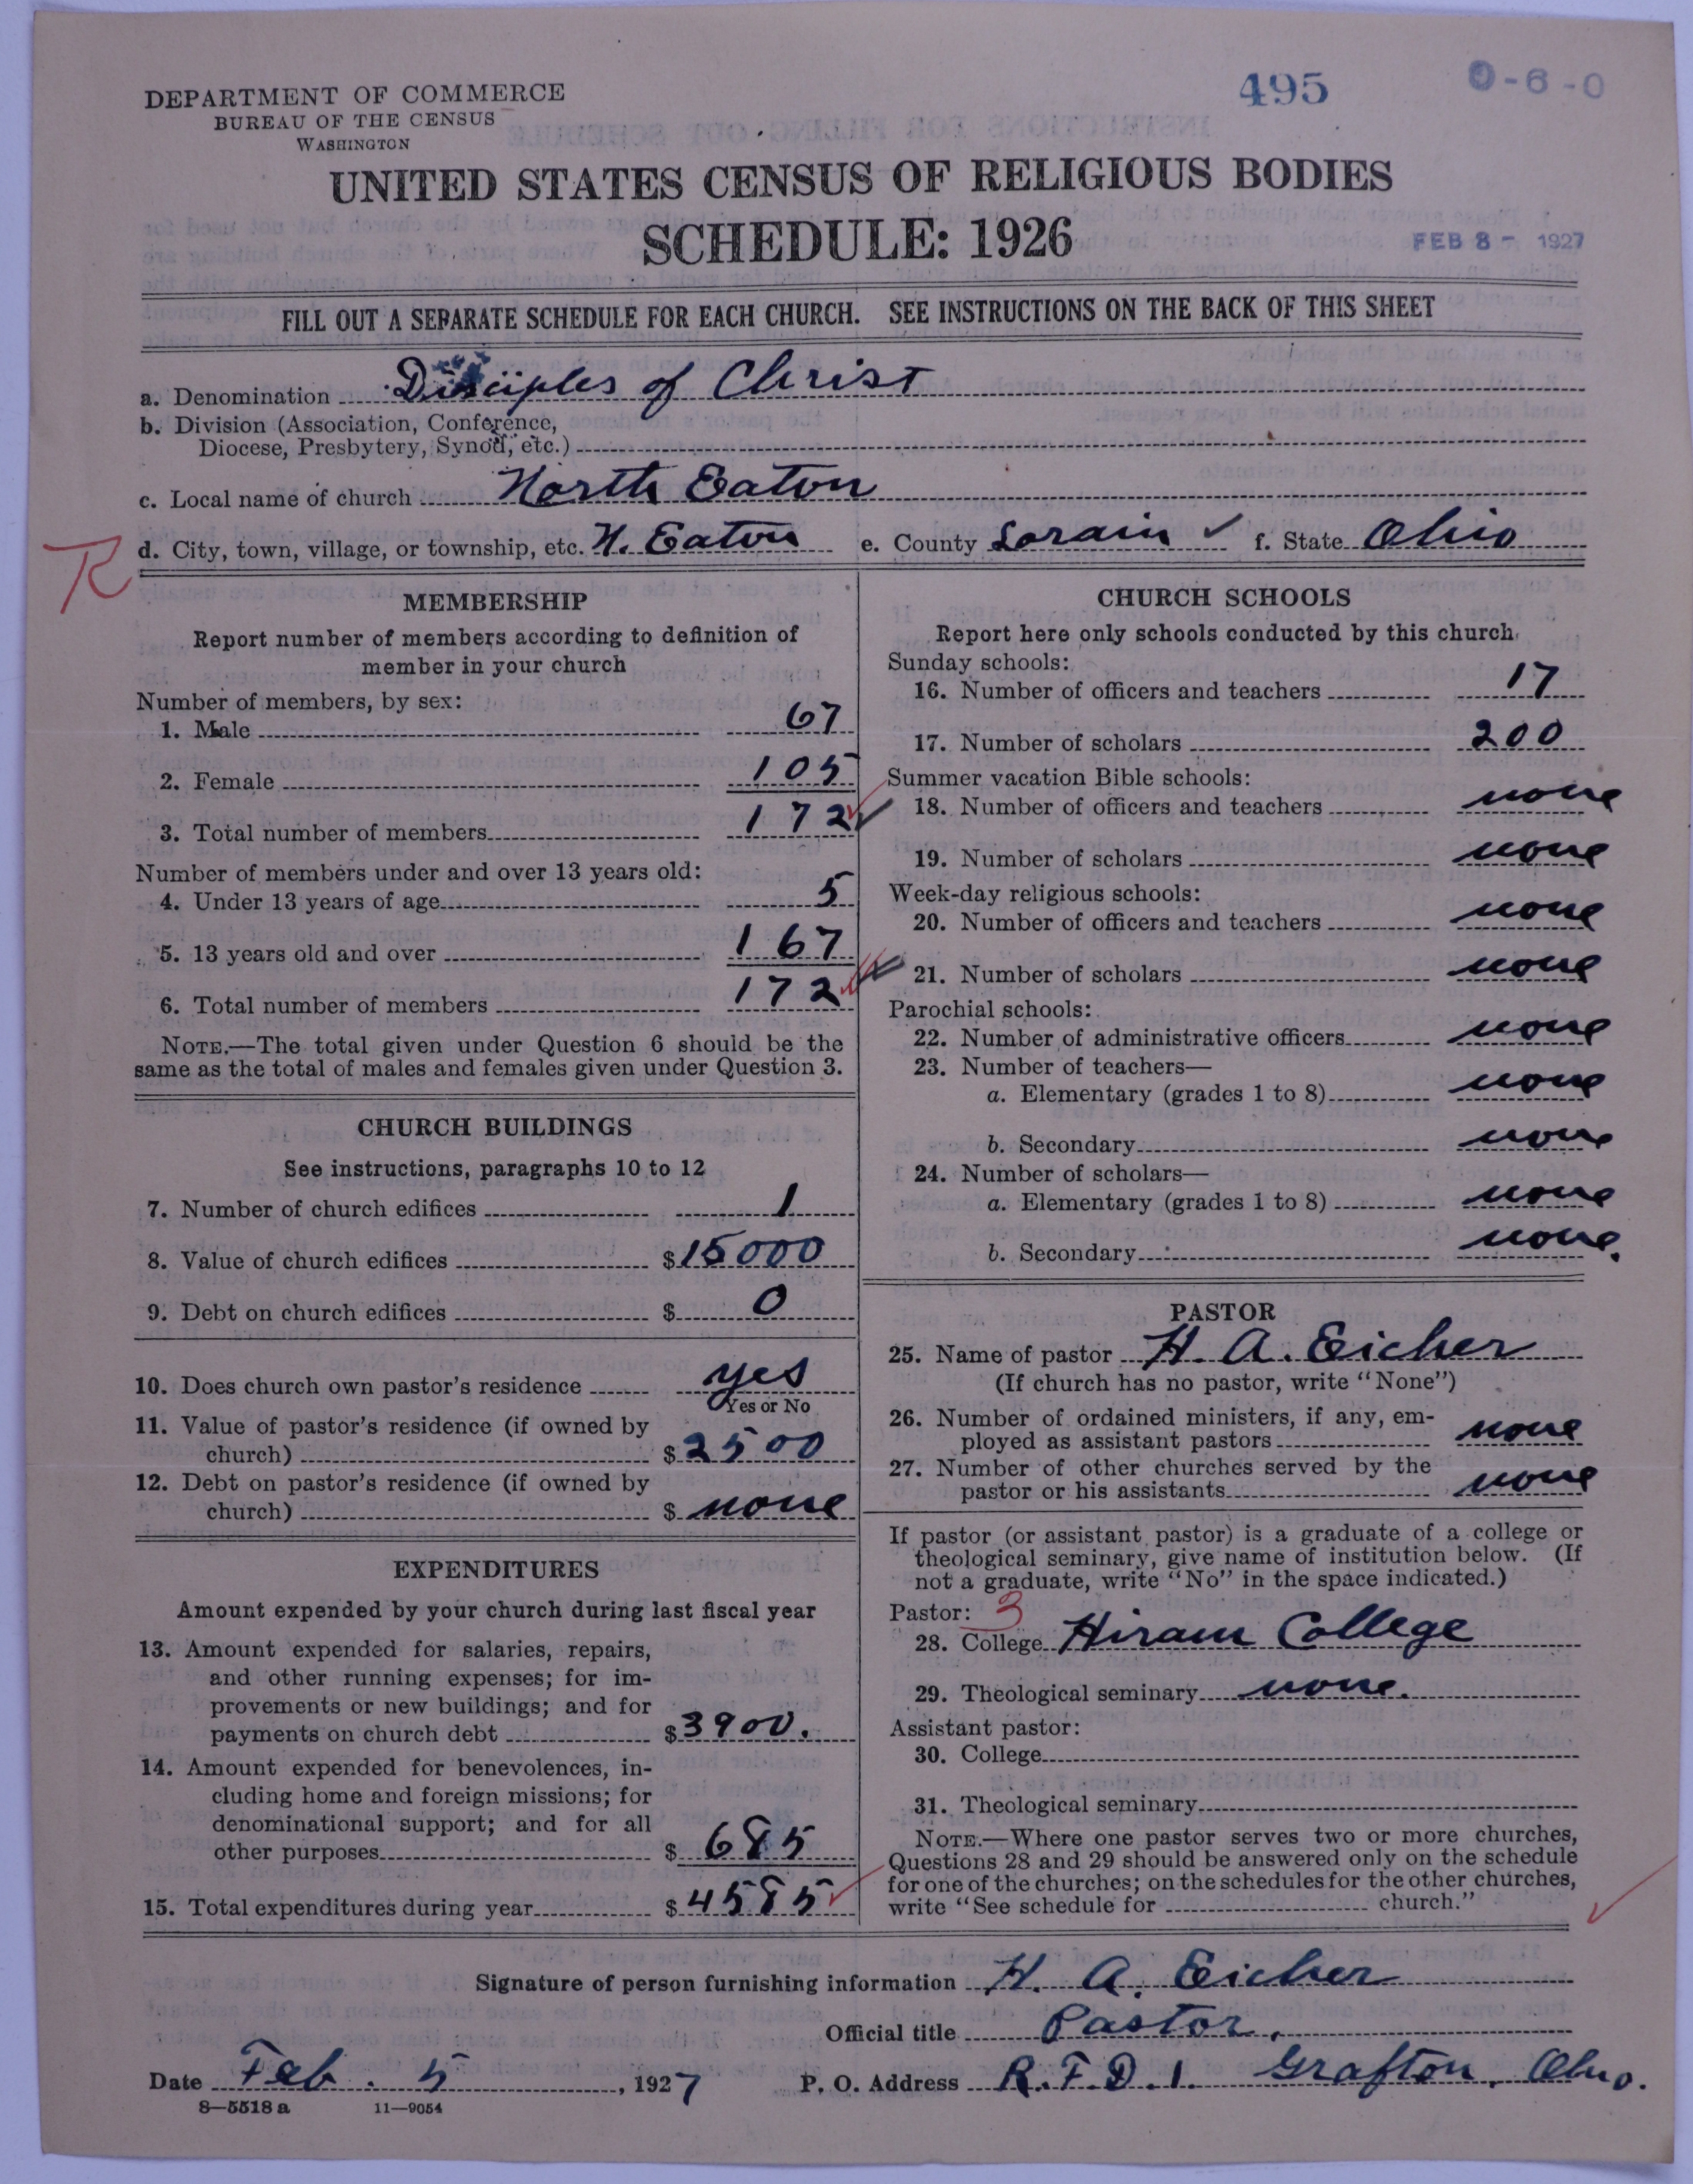 DEPARTMENT OF COMMERCE
BUREAU OF THE CENSUS
WASHINGTON
495
0-6-0
UNITED STATES CENSUS OF RELIGIOUS BODIES
SCHEDULE: 1926
FEB 8 - 1927
FILL OUT A SEPARATE SCHEDULE FOR EACH CHURCH. SEE INSTRUCTIONS ON THE BACK OF THIS SHEET
a. Denomination Disciples of Christ
b. Division (Association, Conference,
Diocese, Presbytery, Synod, etc.)
c. Local name of church North Eaton
R d. City, town, village, or township, etc. N. Eaton e. County Lorain ✓ f. State Ohio
MEMBERSHIP
Report number of members according to definition of
member in your church
Number of members, by sex:
1. Male 67
2. Female 105
3. Total number of members 172
Number of members under and over 13 years old:
4. Under 13 years of age 5
5. 13 years old and over 167
6. Total number of members 172
NOTE.—The total given under Question 6 should be the
same as the total of males and females given under Question 3.
CHURCH BUILDINGS
See instructions, paragraphs 10 to 12
7. Number of church edifices 1
8. Value of church edifices $15000
9. Debt on church edifices $ 0
10. Does church own pastor's residence yes
Yes or No
11. Value of pastor's residence (if owned by
church) $2500
12. Debt on pastor's residence (if owned by
church) $ none
EXPENDITURES
Amount expended by your church during last fiscal year
13. Amount expended for salaries, repairs,
and other running expenses; for im-
provements or new buildings; and for
payments on church debt $3900.
14. Amount expended for benevolences, in-
cluding home and foreign missions; for
denominational support; and for all
other purposes $ 685
15. Total expenditures during year $4585
CHURCH SCHOOLS
Report here only schools conducted by this church.
Sunday schools:
16. Number of officers and teachers 17
17. Number of scholars 200
Summer vacation Bible schools:
18. Number of officers and teachers none
19. Number of scholars none
Week-day religious schools:
20. Number of officers and teachers none
21. Number of scholars none
Parochial schools:
22. Number of administrative officers none
23. Number of teachers—
a. Elementary (grades 1 to 8) none
b. Secondary none
24. Number of scholars—
a. Elementary (grades 1 to 8) none
b. Secondary none.
PASTOR
25. Name of pastor H. A. Eicher
(If church has no pastor, write "None")
26. Number of ordained ministers, if any, em-
ployed as assistant pastors none
27. Number of other churches served by the
pastor or his assistants none
If pastor (or assistant pastor) is a graduate of a college or
theological seminary, give name of institution below. (If
not a graduate, write "No" in the space indicated.)
Pastor: 3
28. College Hiram College
29. Theological seminary none.
Assistant pastor:
30. College
31. Theological seminary
NOTE.—Where one pastor serves two or more churches,
Questions 28 and 29 should be answered only on the schedule
for one of the churches; on the schedules for the other churches,
write "See schedule for church."
Signature of person furnishing information H. A. Eicher
Official title Pastor.
Date Feb. 5, 1927 P. O. Address R.F.D. 1. Grafton, Ohio.
8—5518 a 11—9054